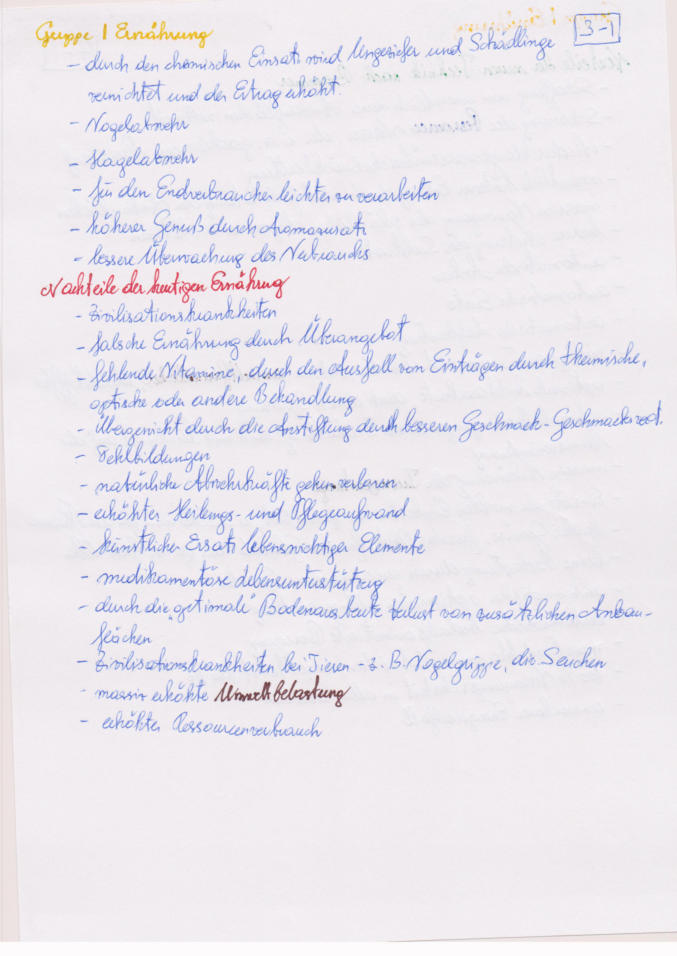 Gruppe 1 Ernährung
3-1
- durch den chemischen Einsatz wird Ungeziefer und Schädlinge
vernichtet und der Ertrag erhöht
- Vogelabwehr
- Hagelabwehr
- für den Endverbraucher leichter zu verarbeiten
- höherer Genuß durch Aromazusatz
- bessere Überwachung des Verbrauchs
Nachteile der heutigen Ernährung
- Zivilisationskrankheiten
- falsche Ernährung durch Überangebot
- fehlende Vitamine, durch den Ausfall von Einträgen durch thermische,
optische oder andere Behandlung
- Übergewicht durch die Anstiftung durch besseren Geschmack - Geschmacks
- Fehlbildungen
- natürliche Abwehrkräfte gehen verloren
- erhöhter Heilungs- und Pflegeaufwand
- künstlicher Ersatz lebenswichtiger Elemente
- medikamentöse Lebensunterstützung
- durch die "optimale" Bodenausbeute Verlust von zusätzlichen Anbau-
flächen
- Zivilisationskrankheiten bei Tieren - z.B. Vogelgrippe, div. Seuchen
- massiv erhöhte Umweltbelastung
- erhöhter Ressourcenverbrauch